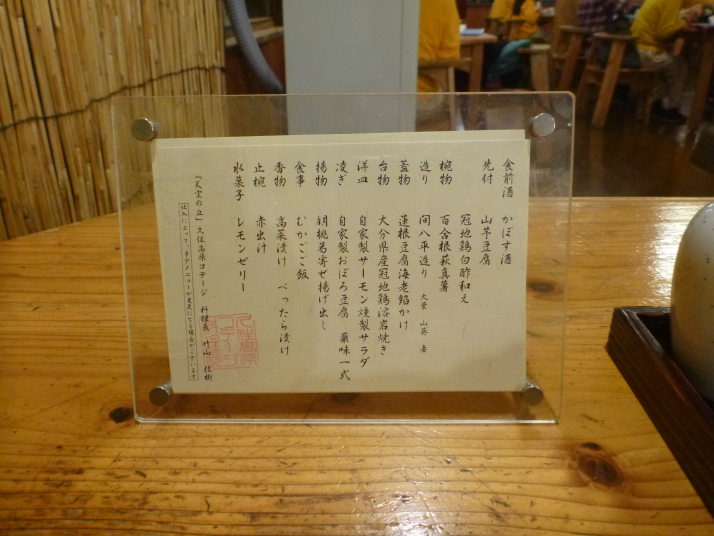 食前酒 かぼす酒
先付 山芋豆腐
冠地鶏白酢和え
椀物 百合根萩真薯
造り 間八平造り 大葉 山葵 妻
蓋物 蓮根豆腐海老餡かけ
台物 大分県産冠地鶏溶岩焼き
洋皿 自家製サーモン燻製サラダ
凌ぎ 自家製おぼろ豆腐 薬味一式
揚物 胡桃葛寄せ揚げ出し
食事 むかごご飯
香物 高菜漬け べったら漬け
止椀 赤出汁
水菓子 レモンゼリー
「天空の丘」久住高原コテージ 料理長 竹山 佳樹
仕入によって、多少メニューが変更になる場合がございます